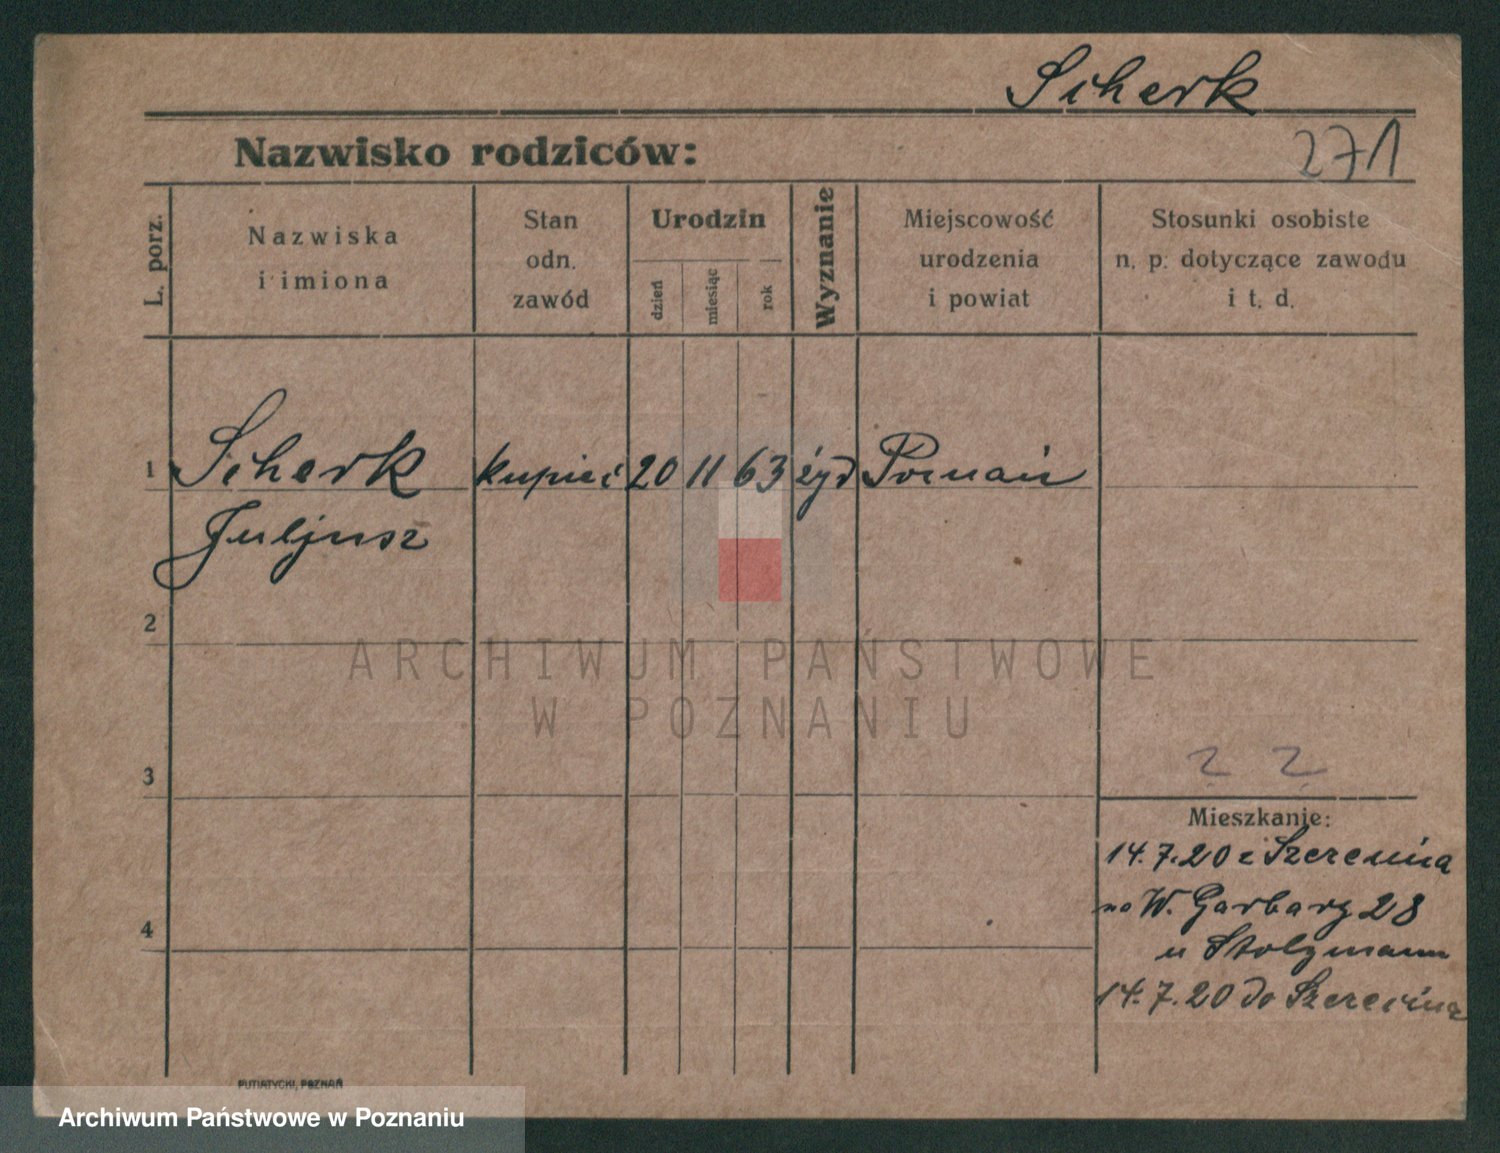 Scherk
Nazwisko rodziców:
271
L. porz.
Nazwiska
i imiona
Stan
odn.
zawód
Urodzin
dzień
miesiąc
rok
Wyznanie
Miejscowość
urodzenia
i powiat
Stosunki osobiste
n. p. dotyczące zawodu
i t. d.
1 Scherk kupiec 20 11 63 żyd Poznań
Juljusz
2
ARCHIWUM PAŃSTWOWE
W POZNANIU
3
? ?
Mieszkanie:
14.7.20 z
na W. Garbary 28
u Stolzmann
14.7.20 do
4
PUTIATYCKI, POZNAŃ
Archiwum Państwowe w Poznaniu